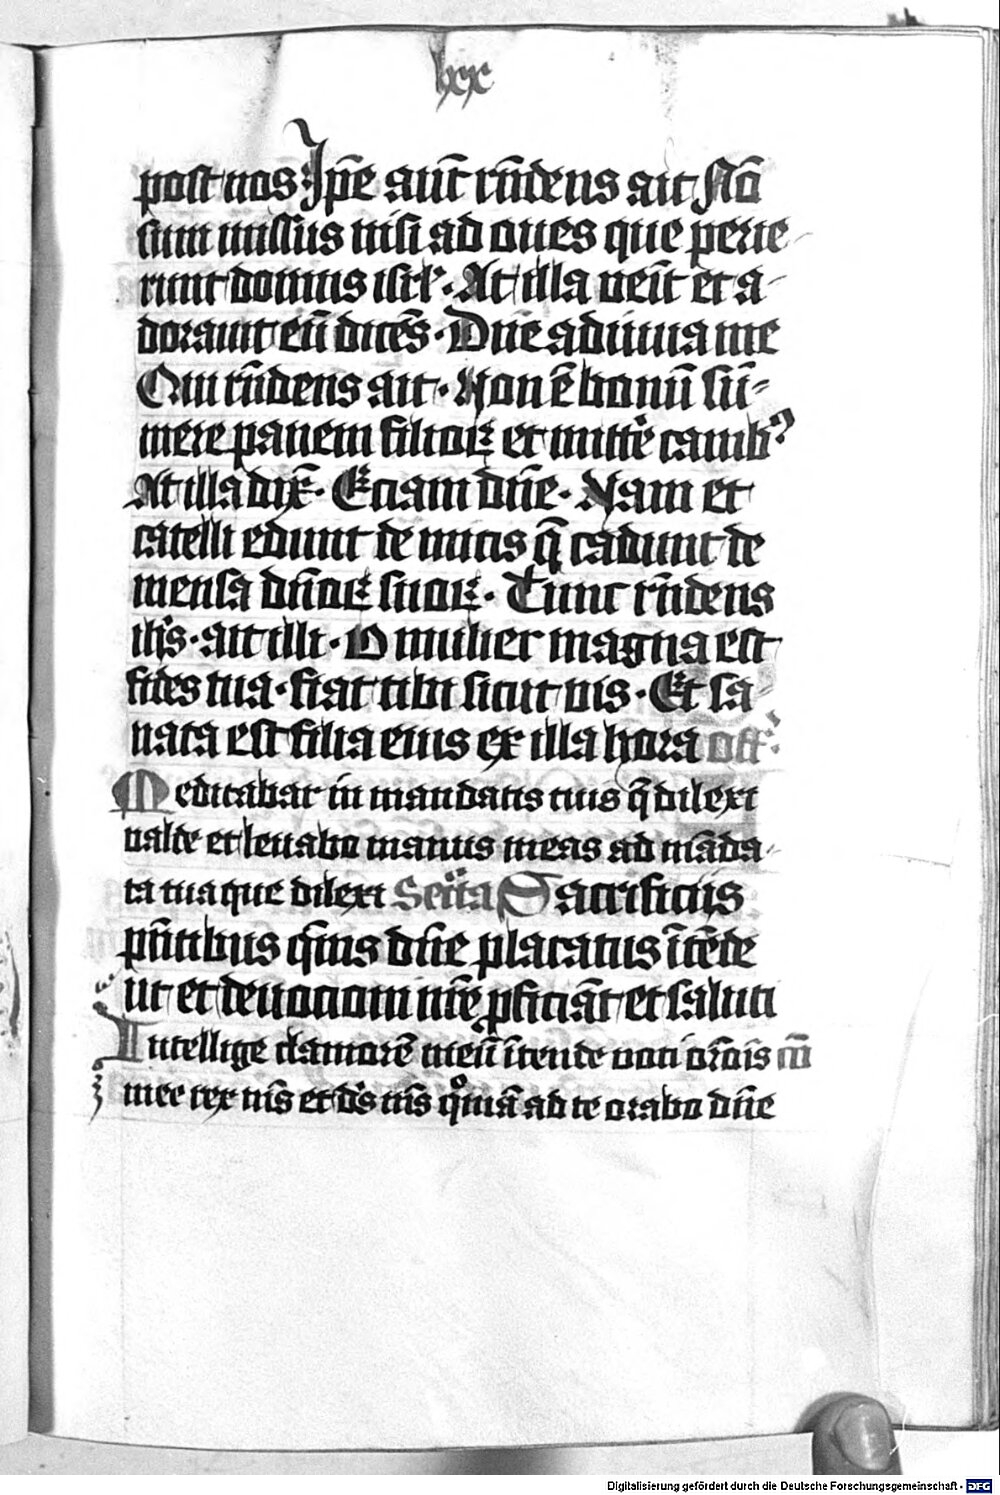 lxx
post nos Jp̄e aut̄ rn̄dens ait Nō
sum missus nisi ad oues que perie-
runt domus isrl̄. At illa ven̄it et a-
dorauit eū dicēs. Dn̄e adiuua me
Qui rn̄dens ait. Non ē bonū sū-
mere panem filioꝝ et mitte᷑ canibꝰ
At illa dix̄. Eciam dn̄e. Nam et
catelli edunt de micis q̄ cadunt de
mensa dn̄oꝝ suoꝝ. Tunc rn̄dens
ih̄s. ait illi. O mulier magna est
fides tua. fiat tibi sicut vis. Et sa-
nata est filia eius ex illa hora off̄:
Meditabar in mandatis tuis q̄ dilexi
valde et leuabo manus meas ad mā̄da-
ta tua que dilexi Secr̄ta Sacrificiis
pn̄tibus qs̄ius dn̄e placatus ītēde
ut et deuocioni nr̄e ꝓficiāt et saluti
Intellige clamorē meū ītende voci or̄ois cō
mee rex ms̄ et ds̄ ms̄ qm̄iā ad te orabo dn̄e
Digitalisierung gefördert durch die Deutsche Forschungsgemeinschaft - DFG